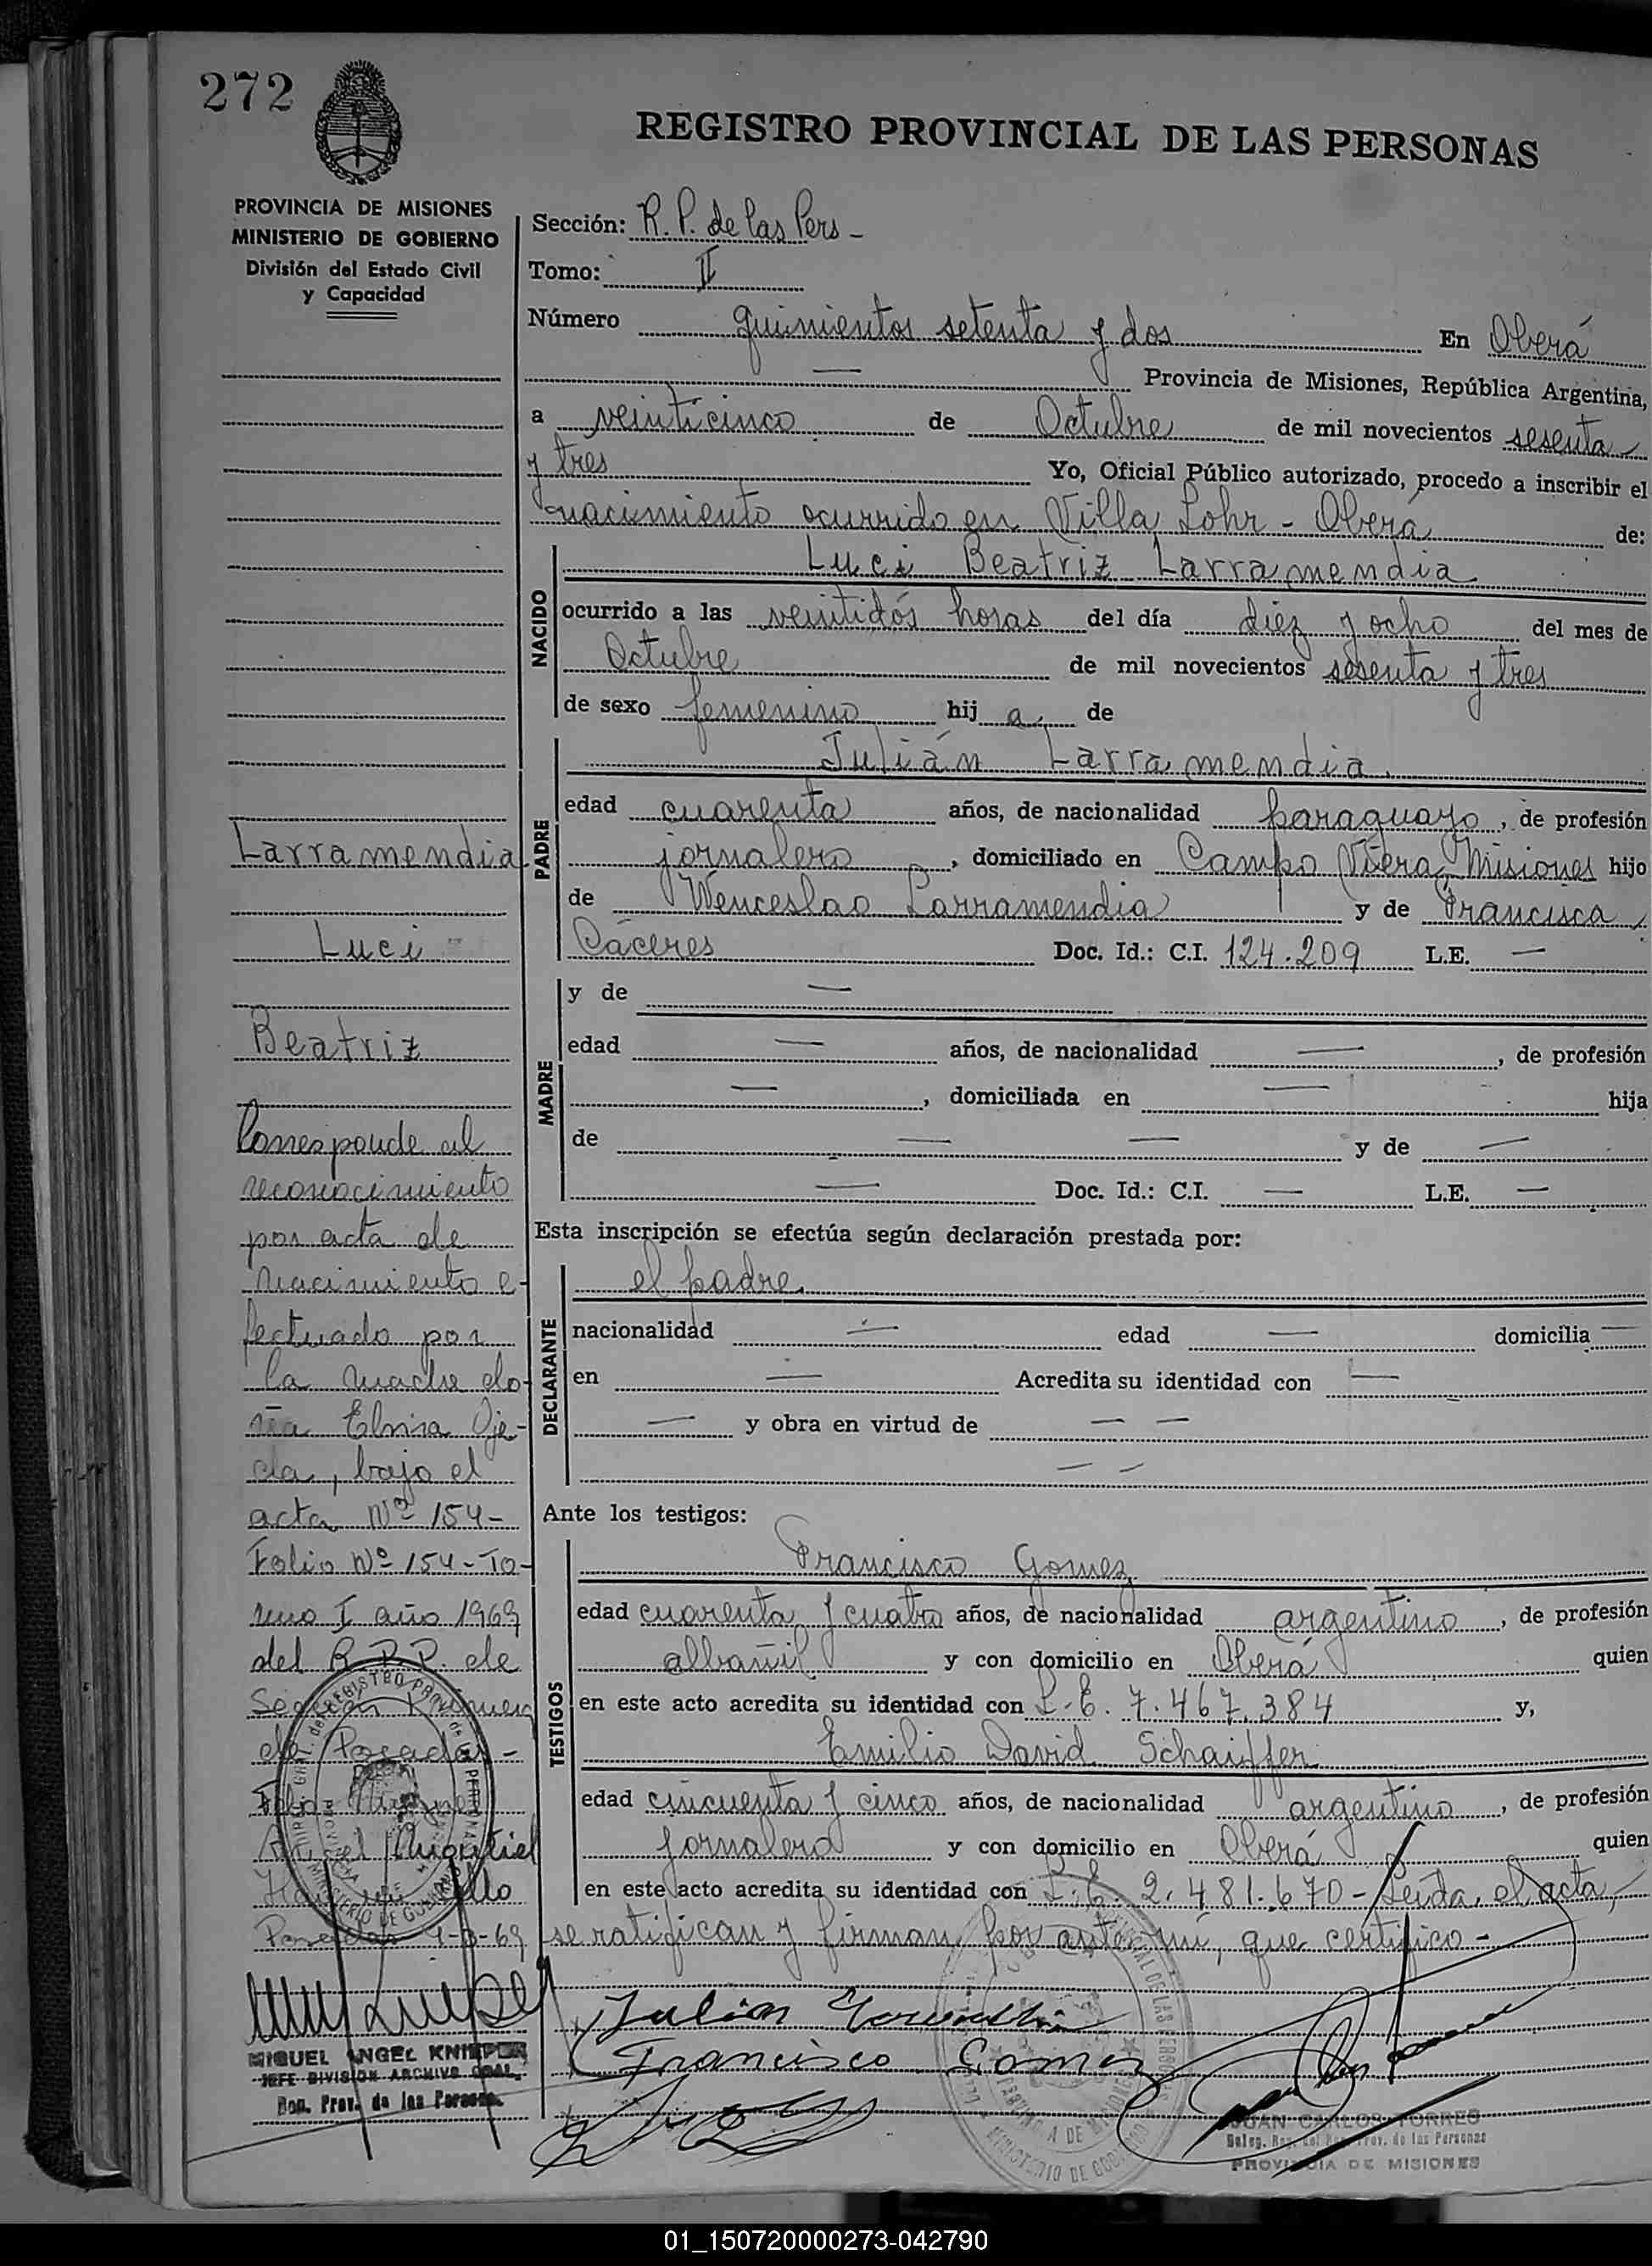 272
REGISTRO PROVINCIAL DE LAS PERSONAS
PROVINCIA DE MISIONES
MINISTERIO DE GOBIERNO
División del Estado Civil
y Capacidad
Sección: R. P. de las Pers -
Tomo: II
Número quinientos setenta y dos En Oberá
— Provincia de Misiones, República Argentina,
a veinticinco de Octubre de mil novecientos sesenta
y tres Yo, Oficial Público autorizado, procedo a inscribir el
nacimiento ocurrido en Villa Lohr - Oberá de:
NACIDO
Luci Beatriz Larramendia
ocurrido a las veintidós horas del día diez y ocho del mes de
Octubre de mil novecientos sesenta y tres
de sexo femenino hij a de
PADRE
Julián Larramendia
edad cuarenta años, de nacionalidad paraguayo, de profesión
jornalero, domiciliado en Campo Viera, Misiones hijo
de Wenceslao Larramendia y de Francisca
Cáceres Doc. Id.: C.I. 124.209 L.E. —
MADRE
y de —
edad — años, de nacionalidad —, de profesión
—, domiciliada en — hija
de — — y de —
— Doc. Id.: C.I. — L.E. —
Esta inscripción se efectúa según declaración prestada por:
DECLARANTE
el padre.
nacionalidad — edad — domicilia —
en — Acredita su identidad con —
— y obra en virtud de — —
— —
Ante los testigos:
TESTIGOS
Francisco Gomez
edad cuarenta y cuatro años, de nacionalidad argentino, de profesión
albañil y con domicilio en Oberá quien
en este acto acredita su identidad con L.E. 7.467.384 y,
Emilio David Schaiffer
edad cincuenta y cinco años, de nacionalidad argentino, de profesión
jornalero y con domicilio en Oberá quien
en este acto acredita su identidad con L.E. 2.481.670 - Leída, el acta,
se ratifican y firman por ante mí, que certifico -
Julian
Francisco Gomez
JUAN CARLOS TORRES
Prov. de las Personas
PROVINCIA DE MISIONES
Larramendia
Luci
Beatriz
Corresponde al
reconocimiento
por acta de
nacimiento e-
fectuado por
la madre do-
ña Elvira Oje-
da, bajo el
acta Nº 154-
Folio Nº 154- To-
mo I año 1969
del R.P.P. de
de Posadas -
MIGUEL ANGEL KNIEPER
JEFE DIVISION ARCHIVO GRAL.
Rep. Prov. de las Personas
01_150720000273-042790